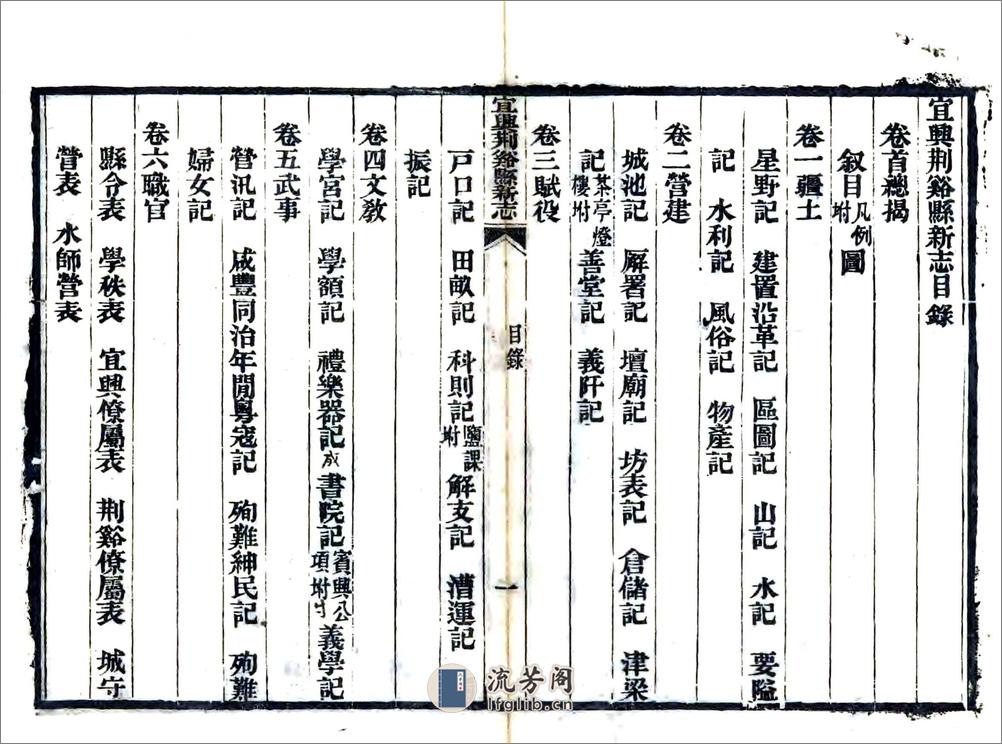 宜興荆谿縣新志目錄
卷首總揭
叙目凡例附 圖
卷一疆土
星野記 建置沿革記 區圖記 山記 水記 要隘
記 水利記 風俗記 物產記
卷二營建
城池記 廨署記 壇廟記 坊表記 倉儲記 津梁
記茶亭燈樓附 善堂記 義阡記
卷三賦役
宜興荆谿縣新志
目錄
一
戸口記 田畝記 科則記鹽課附 解支記 漕運記
振記
卷四文敎
學宮記 學額記 禮樂器記 書院記賓興公項附 義學記
卷五武事
營汛記 咸豐同治年閒粵寇記 殉難紳民記 殉難
婦女記
卷六職官
縣令表 學秩表 宜興僚屬表 荆谿僚屬表 城守
營表 水師營表
流芳阁
lfglib.cn